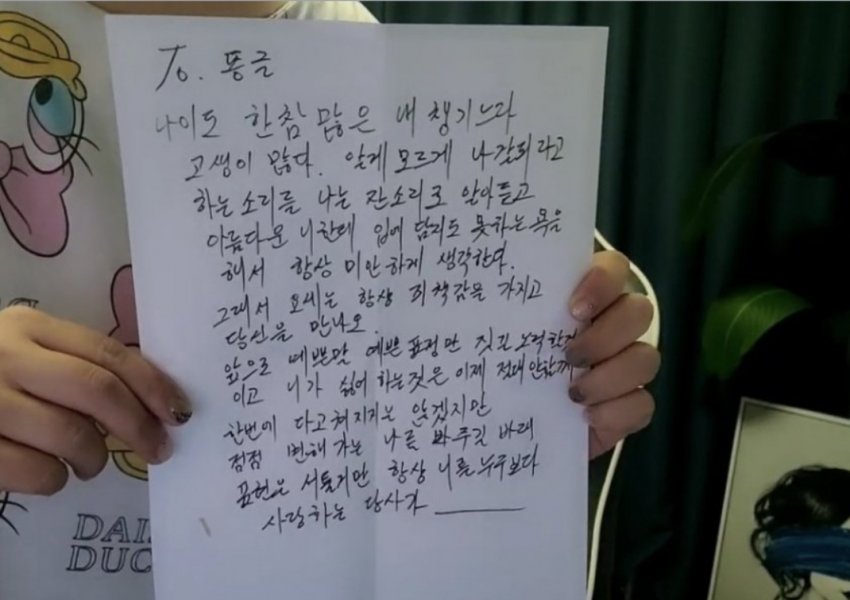 To. 똥글
나이도 한참 많은 내 챙기느라
고생이 많다. 알게 모르게 나 갈궈라고
하는 소리를 나는 잔소리로 알아듣고
아름다운 니한테 입에 담지도 못하는 욕을
해서 항상 미안하게 생각한다.
그래서 요새는 항상 죄책감을 가지고
당신을 만나오.
앞으로 예쁜말 예쁜 표정만 짓긴 노력할
이고 니가 싫어 하는짓은 이제 절대 안할께
한번에 다고쳐지지는 않겠지만
점점 변해 가는 나를 봐주길 바래
표현은 서툴지만 항상 너를 누구보다
사랑하는 당사가
DAI
DUC